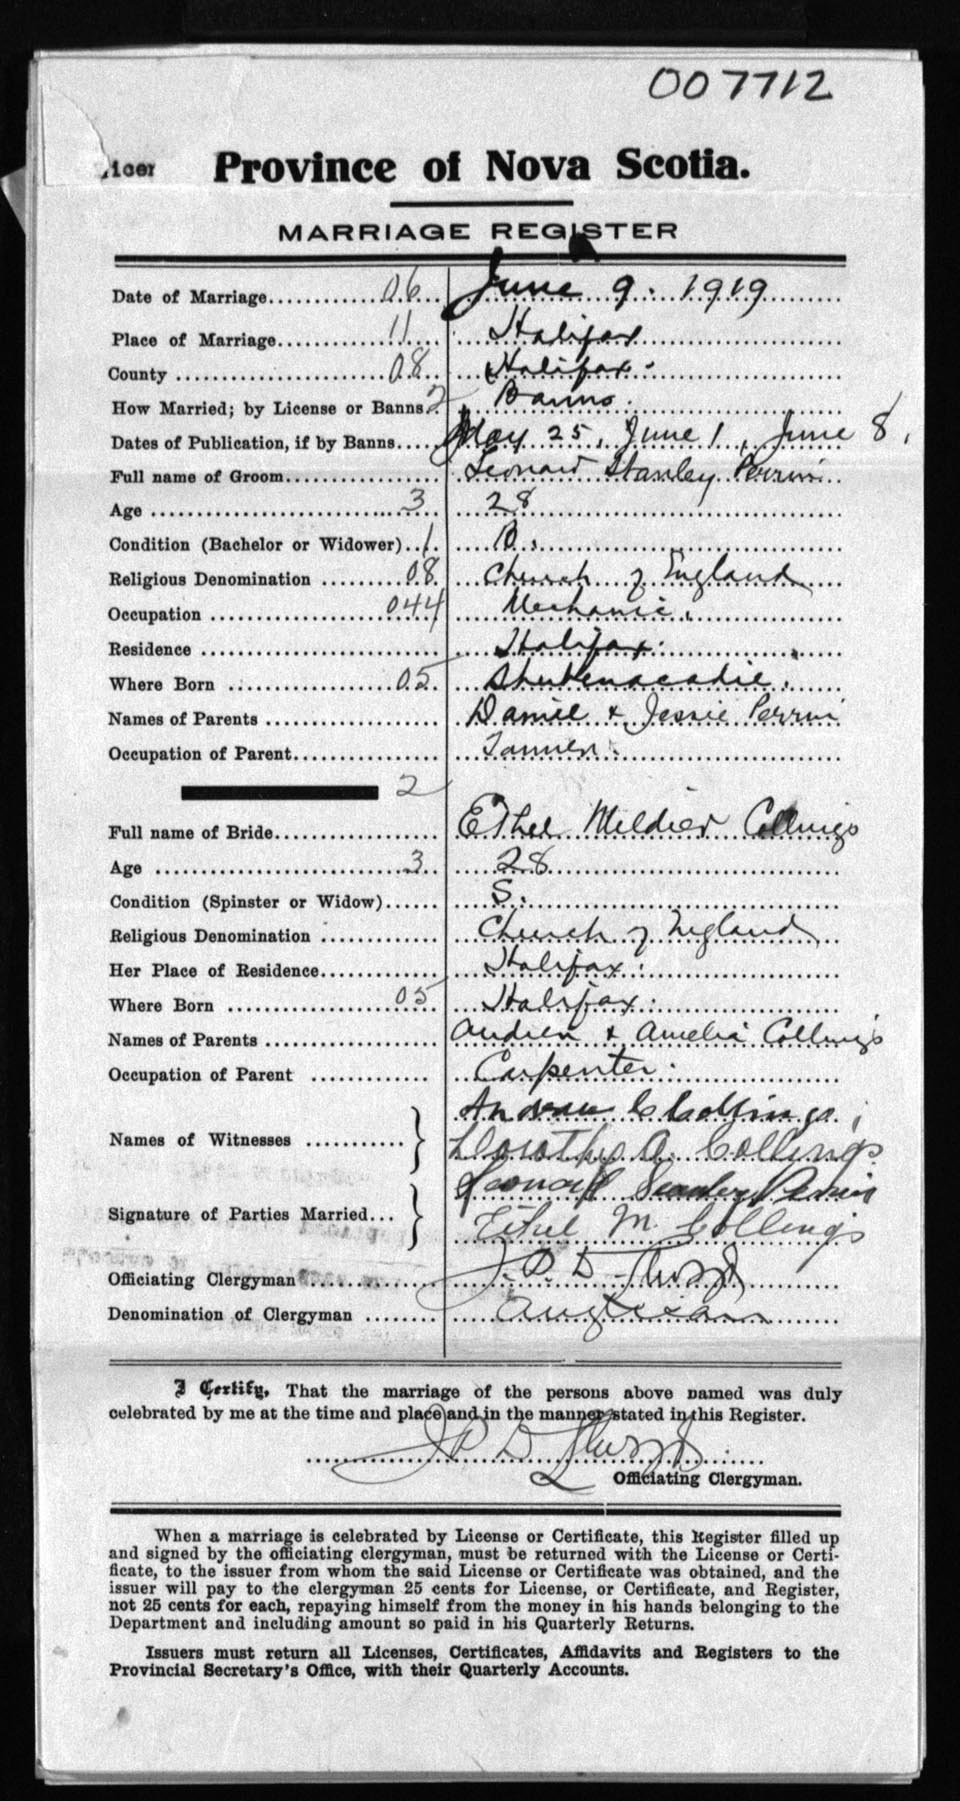 007712
icer Province of Nova Scotia.
MARRIAGE REGISTER
Date of Marriage 06 June 9. 1919
Place of Marriage 11 Halifax
County 08 Halifax.
How Married; by License or Banns 2 Banns.
Dates of Publication, if by Banns May 25, June 1, June 8,
Full name of Groom Leonard Stanley Perrin
Age 3 28
Condition (Bachelor or Widower) 1 B.
Religious Denomination 08 Church of England
Occupation 044 Mechanic.
Residence Halifax.
Where Born 05 Shubenacadie.
Names of Parents Daniel & Jessie Perrin
Occupation of Parent Tanner.
2
Full name of Bride Ethel Mildred Collings
Age 3 28
Condition (Spinster or Widow) S.
Religious Denomination Church of England
Her Place of Residence Halifax.
Where Born 05 Halifax.
Names of Parents Andrew & Amelia Collings
Occupation of Parent Carpenter.
Andrew C Collings.
Names of Witnesses Dorothy A. Collings
Leonard Stanley Perrin
Signature of Parties Married Ethel M Collings
Officiating Clergyman J. P. D.
Denomination of Clergyman Anglican
I Certify, That the marriage of the persons above named was duly
celebrated by me at the time and place and in the manner stated in this Register.
J P D
Officiating Clergyman.
When a marriage is celebrated by License or Certificate, this Register filled up
and signed by the officiating clergyman, must be returned with the License or Certi-
ficate, to the issuer from whom the said License or Certificate was obtained, and the
issuer will pay to the clergyman 25 cents for License, or Certificate, and Register,
not 25 cents for each, repaying himself from the money in his hands belonging to the
Department and including amount so paid in his Quarterly Returns.
Issuers must return all Licenses, Certificates, Affidavits and Registers to the
Provincial Secretary's Office, with their Quarterly Accounts.